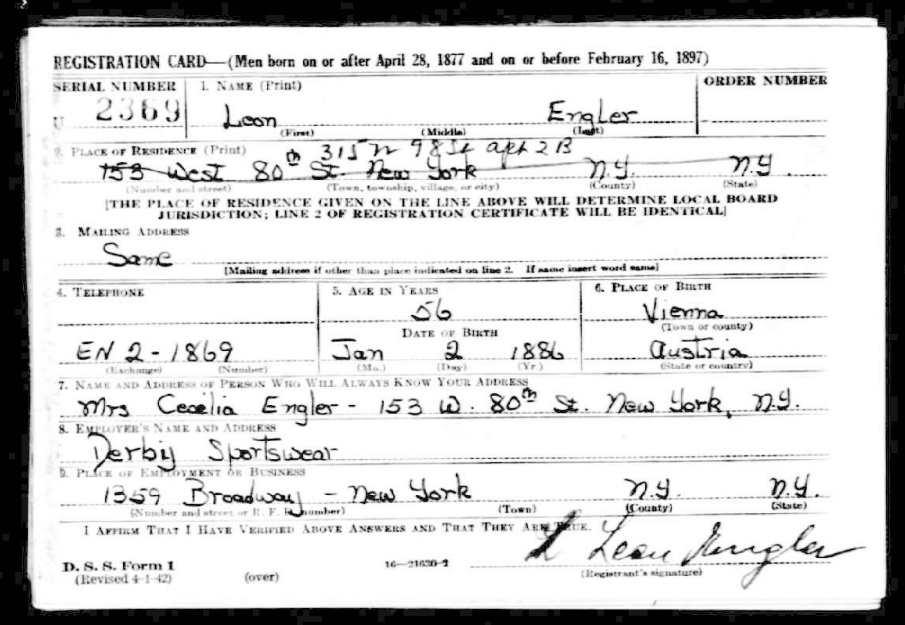 REGISTRATION CARD—(Men born on or after April 28, 1877 and on or before February 16, 1897)
SERIAL NUMBER 1. NAME (Print) ORDER NUMBER
U 2369 Leon Engler
(First) (Middle) (Last)
2. PLACE OF RESIDENCE (Print) 315 W 98 St apt 2B
153 West 80th St. New York N.Y. N.Y.
(Number and street) (Town, township, village, or city) (County) (State)
[THE PLACE OF RESIDENCE GIVEN ON THE LINE ABOVE WILL DETERMINE LOCAL BOARD
JURISDICTION; LINE 2 OF REGISTRATION CERTIFICATE WILL BE IDENTICAL]
3. MAILING ADDRESS
Same
[Mailing address if other than place indicated on line 2. If same insert word same]
4. TELEPHONE 5. AGE IN YEARS 6. PLACE OF BIRTH
56 Vienna
DATE OF BIRTH (Town or county)
EN 2-1869 Jan 2 1886 Austria
(Exchange) (Number) (Mo.) (Day) (Yr.) (State or country)
7. NAME AND ADDRESS OF PERSON WHO WILL ALWAYS KNOW YOUR ADDRESS
Mrs Cecelia Engler - 153 W. 80th St. New York, N.Y.
8. EMPLOYER'S NAME AND ADDRESS
Derby Sportswear
9. PLACE OF EMPLOYMENT OR BUSINESS
1359 Broadway - New York N.Y. N.Y.
(Number and street or R. F. D. number) (Town) (County) (State)
I AFFIRM THAT I HAVE VERIFIED ABOVE ANSWERS AND THAT THEY ARE TRUE.
Leon Engler
D. S. S. Form 1 16—21630-2
(Revised 4-1-42) (over) (Registrant's signature)